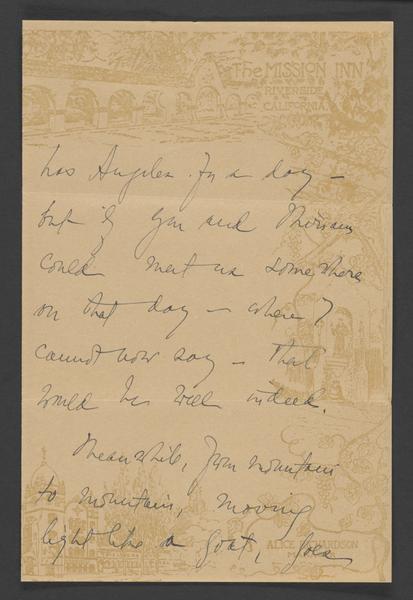 The MISSION INN
RIVERSIDE
CALIFORNIA
Los Angeles for a day –
but if you and Miriam
could meet us somewhere
on that day – where I
cannot now say – that
would be well indeed.
Meanwhile, from mountain
to mountain, moving
light like a goat, goes
ALICE RICHARDSON